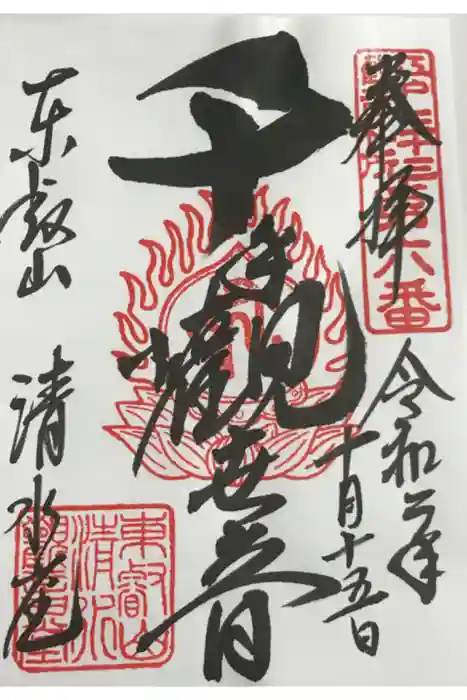 奉拝
第六番
令和二年
十月十五日
千手觀世音
東叡山 清水堂
東叡山
清水
觀音堂